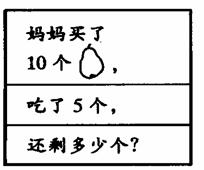 妈妈买了
10个 ，
吃了5个，
还剩多少个？